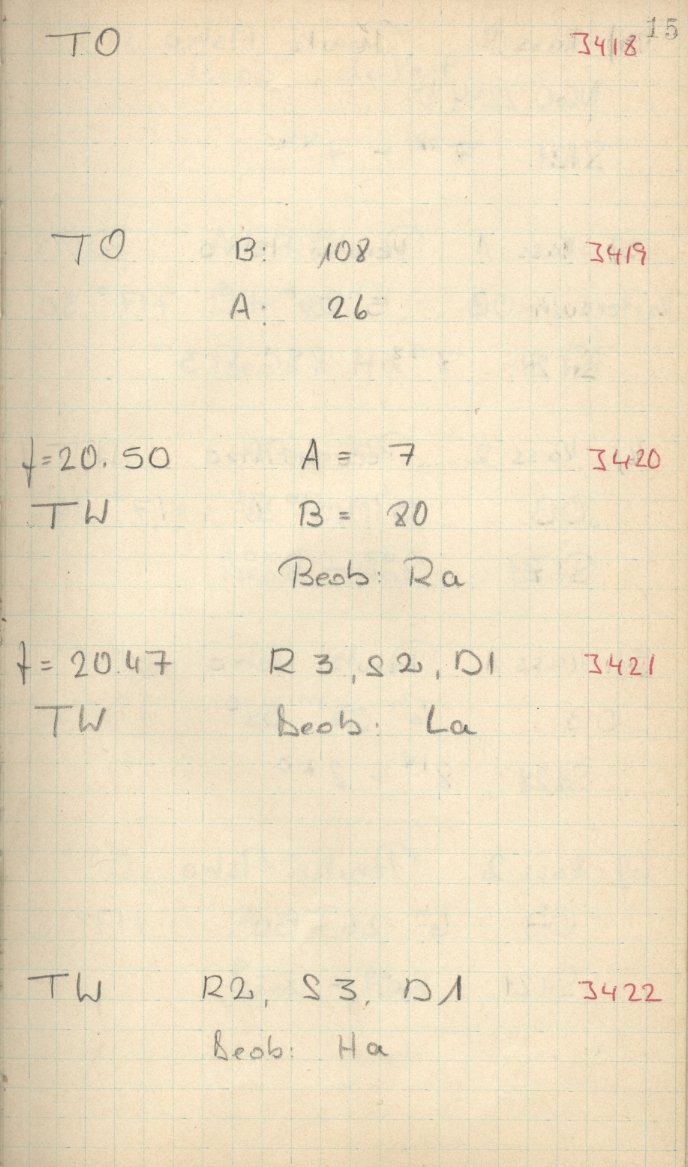 15
TO 3418
TO B: 108 3419
A: 26
f=20.50 A = 7 3420
TW B = 80
Beob: Ra
f= 20.47 R3, S2, D1 3421
TW Beob: La
TW R2, S3, D1 3422
Beob: Ha